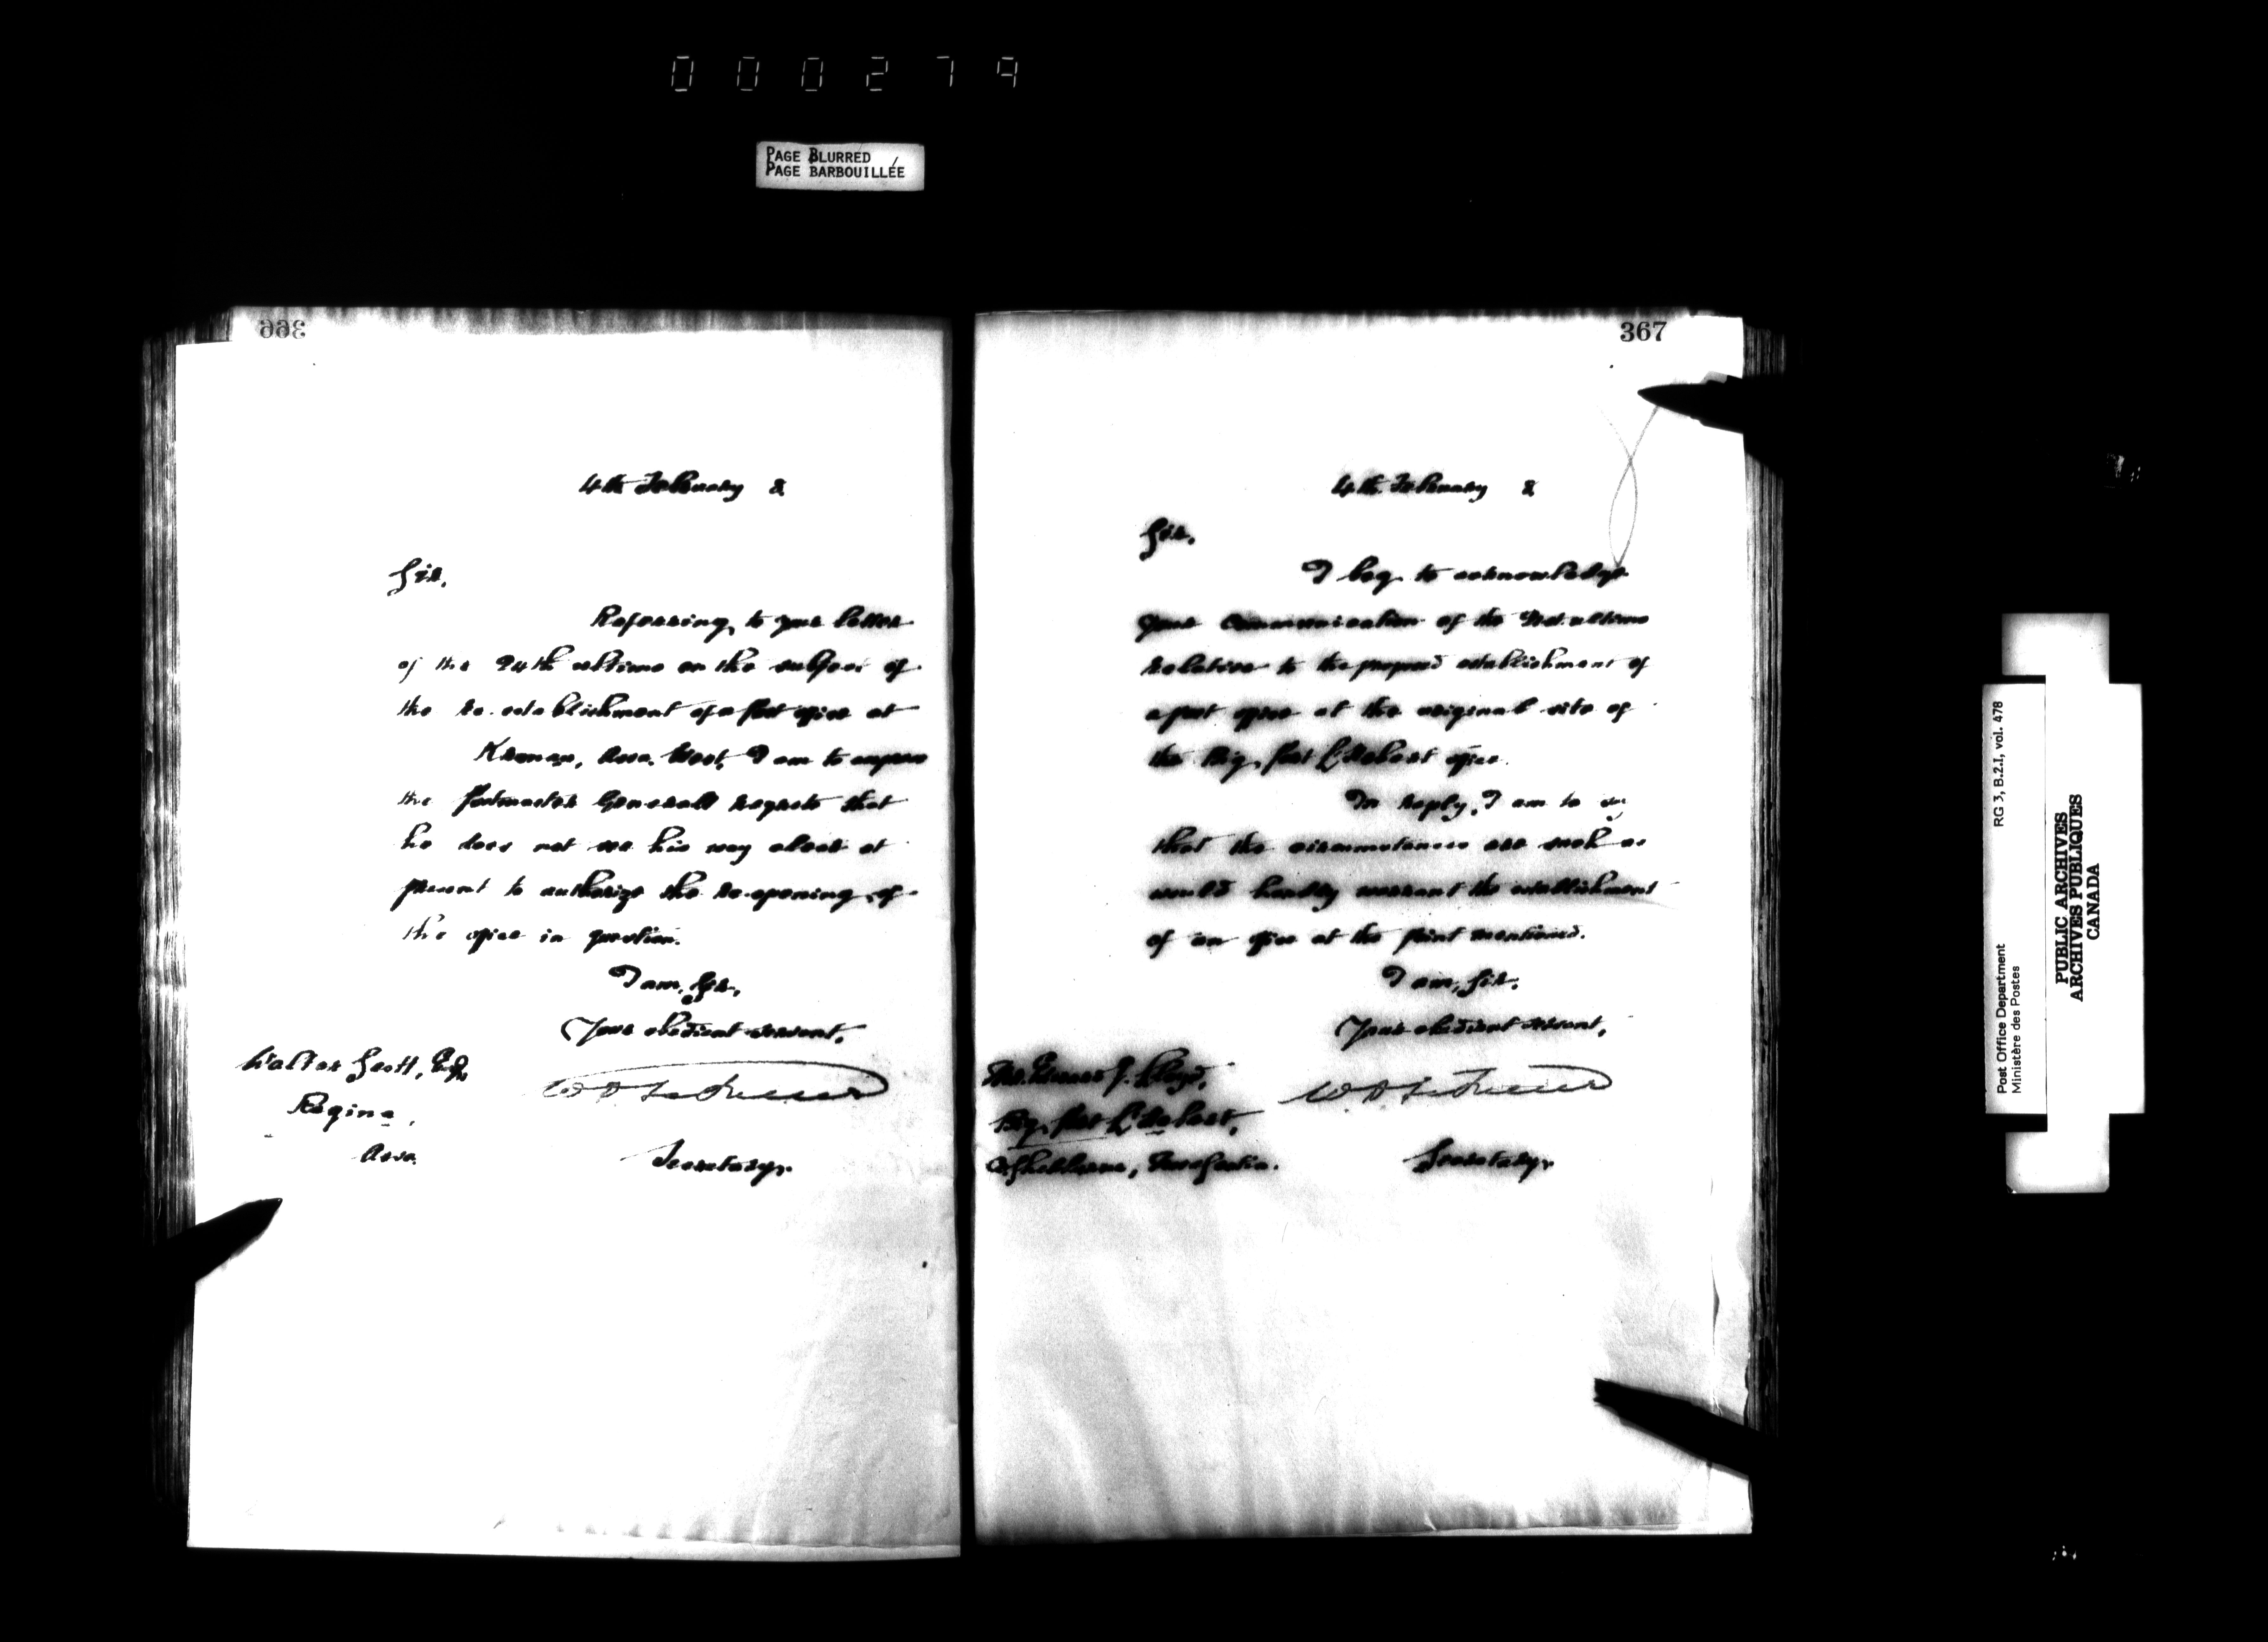 000279
PAGE BLURRED
PAGE BARBOUILLÉE
366
4th February 2
Sir,
Referring to your letter
of the 24th ultimo on the subject of
the re-establishment of a post office at
Assa. West, I am to express
the Postmaster General regrets that
he does not see his way clear at
present to authorize the re-opening of
the office in question.
I am, Sir,
Your obedient servant,
Walter Scott, Esq
Regina,
Assa.
Secretary.
367
4th February 2
Sir,
I beg to acknowledge
your communication of the ultimo
relative to the proposed establishment of
a post office at the original site of
the Big Port L'Hebert office.
In reply, I am to say
that the circumstances are such as
would hardly warrant the establishment
of an office at the point mentioned.
I am, Sir,
Your obedient servant,
Lloyd,
Big Port L'Hebert,
Co Shelburne, Nova Scotia.
Secretary.
Post Office Department
Ministère des Postes
RG 3, B.2.I, vol. 478
PUBLIC ARCHIVES
ARCHIVES PUBLIQUES
CANADA